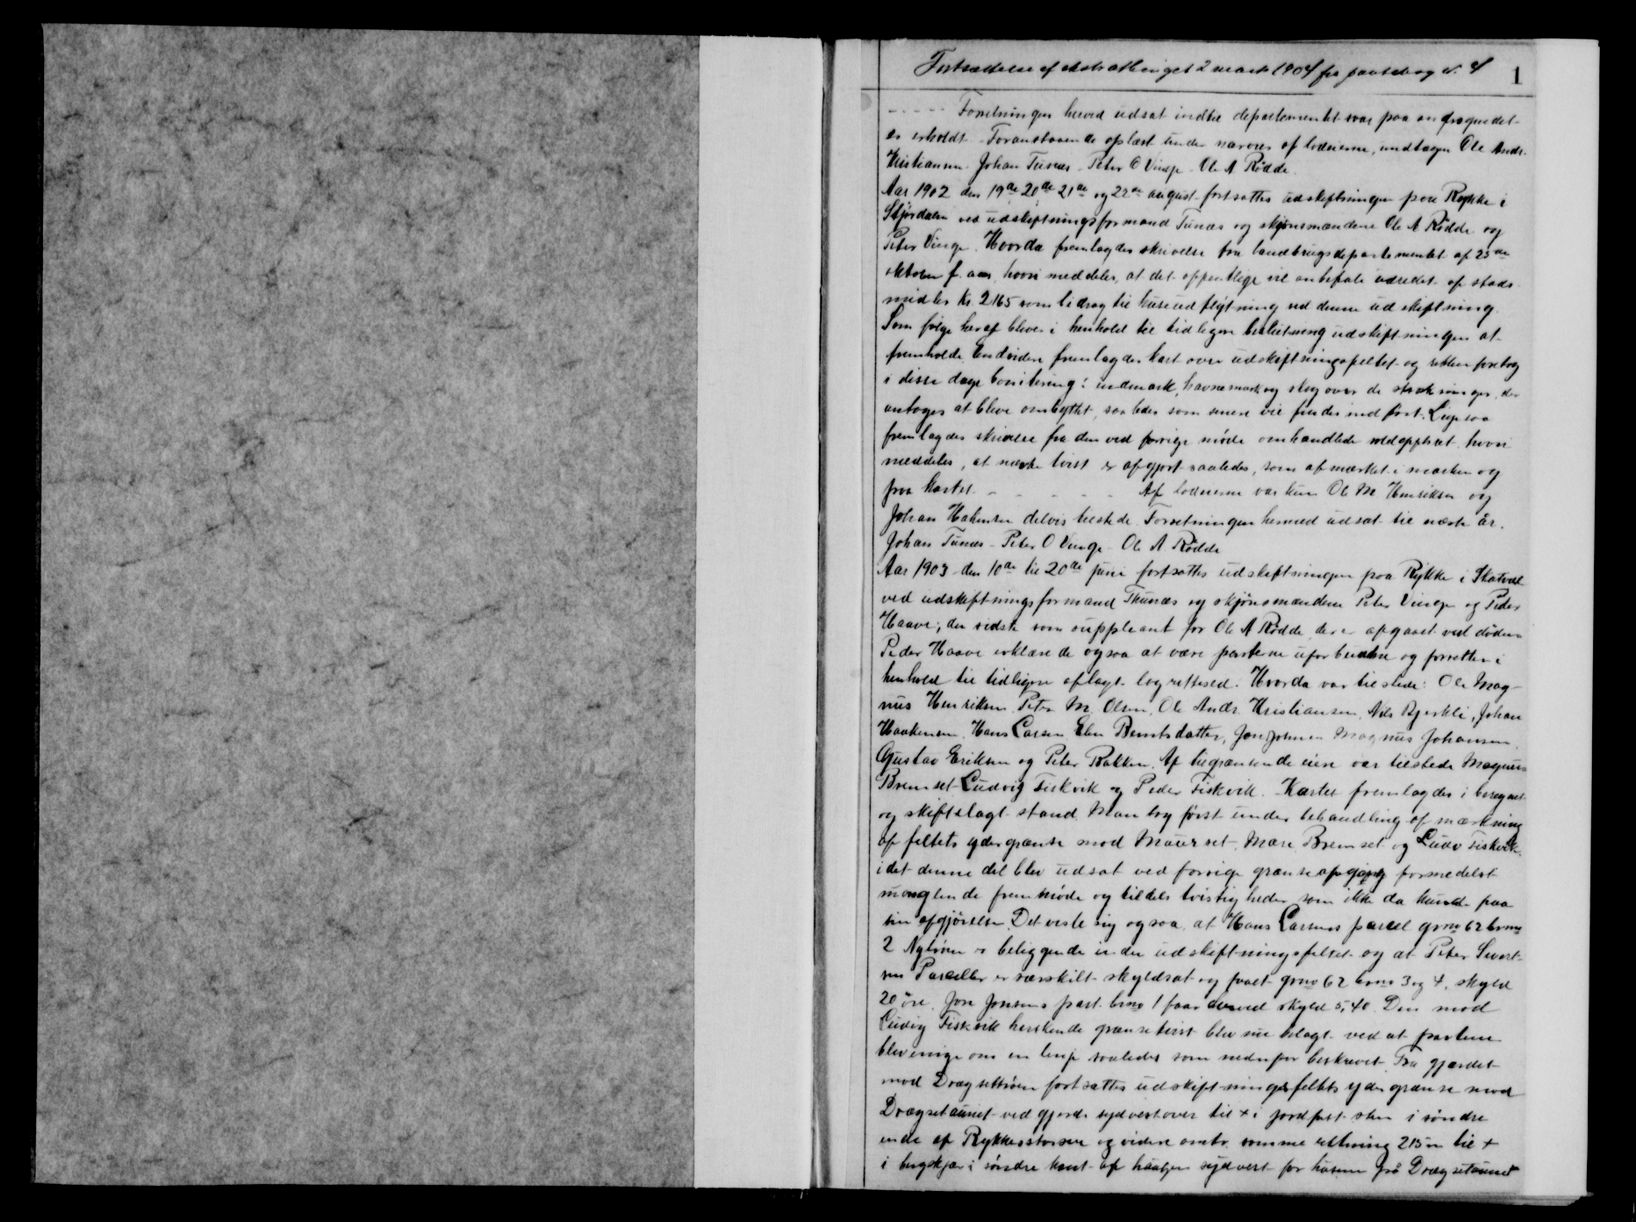 Fortsættelse af ekstrathinget 2 marts 1904 fra pantebog n. 4
1
Forretningen herved udsat indtil departementets svar paa andragendet
er erholdt. Foranstaaende oplæst under nærvær af lodeierne, undtagen Ole Andr.
Kristiansen. Johan Tunæs - Peter O Vinge - Ole A Rödde
Aar 1902 den 19de 20de 21de og 22de august fortsattes udskiftningen paa Rykke i
Stjördalen ved udskiftningsformand Tunæs og skjönsmændene Ole A Rödde og
Peter Vinge. Hvorda fremlagdes skrivelse fra landbrugsdepartementet af 25de
oktober f. aar hvori meddeles, at det offentlige vil anbefale udredet af stats-
midler Kr. 2165 som bidrag til husudflytning ved denne udskiftning.
Som fölge heraf bliver i henhold til tidligere beslutning udskiftningen at
fremholde. Endvidere fremlagdes kart over udskiftningsfeltet og retten foretog
i disse dage bonitering i indmark, havnemark og skog over de strækninger, der
antages at blive ombyttet, saaledes som senere vil findes indfört. Ligesaa
fremlagdes skrivelse fra den ved forrige möde omhandlede voldgiftsret hvori
meddeles, at nævnte tvist er afgjort saaledes, som afmærket i marken og
paa kartet. - - - - - Af lodeierne var kun Ole M Henriksen og
Johan Hakensen delvis tilstede. Forretningen hermed udsat til næste år.
Johan Tunæs - Peter O Vinge - Ole A Rödde
Aar 1903 den 10de til 20de juni fortsattes udskiftningen paa Rykke i Skatval
ved udskiftningsformand Thunæs og skjönsmændene Peter Vinge og Peder
Haave, den sidste som suppleant for Ole A Rödde der er afgaaet ved döden
Peder Haave erklærede ogsaa at være parterne uforbunden og forretter i
henhold til tidligere aflagt lagretteed. Hvorda var tilstede: Ole Mag-
nus Henriksen, Peter M. Olsen, Ole Andr Kristiansen, Nils Bjerkli, Johan
Haakensen, Hans Larsen, Elen Berntsdatter, Jon Johnsen Magnus Johansen,
Gustav Eriksen og Peter Rakken. Af tilgrændsende eiere var tilstede Magnus
Bremset Ludvig Fiskvik og Peder Fiskvik. Kartet fremlagdes i beregnet
og skiftelagt stand. Man tog först under behandling afmærkning
af feltets ydergrænse mod Maurset, Mære, Bremset og Ludv Fiskvik,
idet denne del blev udsat ved forrige grænseafgang formedelst
manglende fremmöde og tildels tvistigheder som ikke da kunde faa
sin afgjörelse. Det viste sig ogsaa, at Hans Larsens parcel gno 62 bno
2 Nylönen er beliggende inden udskiftningsfeltet og at Peter Sivert-
sens Parceller er særskilt skyldsat og faaet gno 62 bno 3 og 4, skyld
20 öre. Jon Jonsens part bno 1 faar derved skyld 5,40. Den mod
Ludvig Fiskvik herskende grænsetvist blev nu bilagt ved at parterne
blev enige om en linje saaledes som nedenfor beskrevet. Fra gjærdet
mod Drægsettröen fortsættes udskiftningsfeltets ydergrænse mod
Drægsetaunet ved gjerde sydvestover til + i jordfast sten i söndre
ende af Rykkestörsen og videre omtr. samme retning 215 m til +
i bergskjær i söndre kant af haugen sydvest for husene på Drægsetaunet